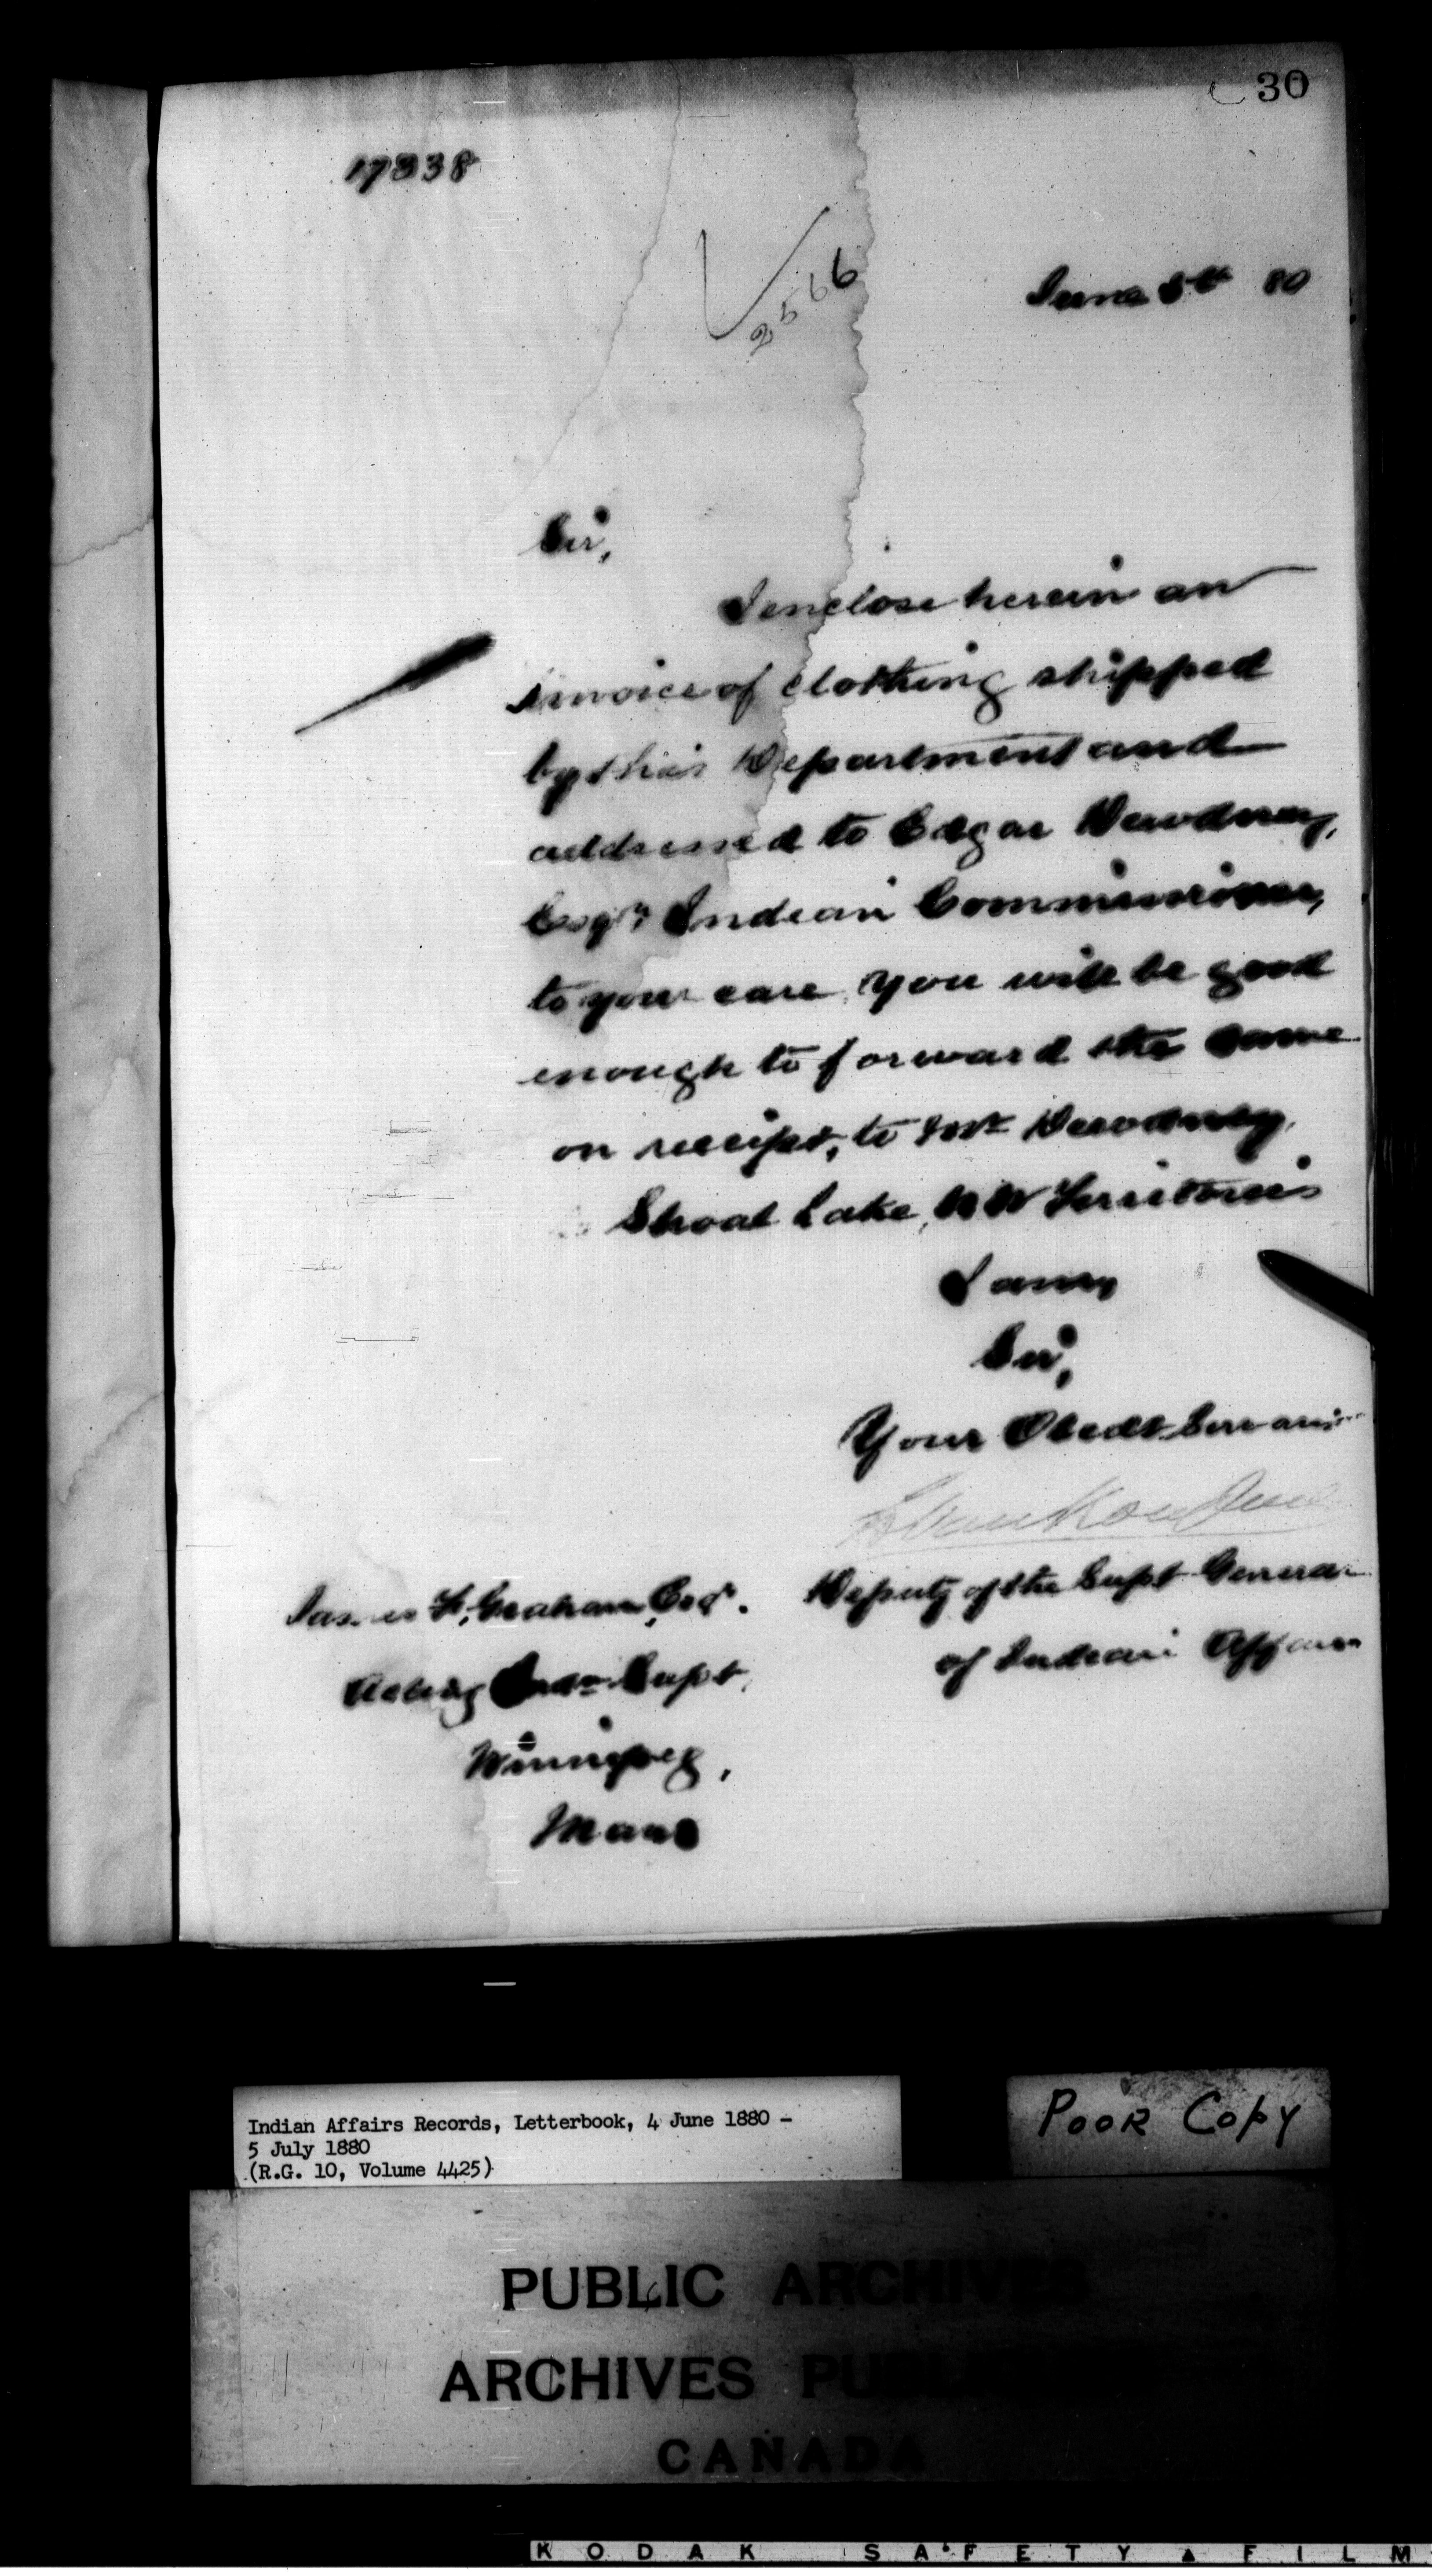 30
17338
2566
June 5th 80
Sir,
I enclose herein an
invoice of clothing shipped
by this Department and
addressed to Edgar Dewdney,
Esqre Indian Commissioner,
to your care. You will be good
enough to forward the same
on receipt, to Mr Dewdney,
Shoal Lake, N W Territories
I am,
Sir,
Your Obedt Servant
L VanKoughnet
Deputy of the Supt General
of Indian Affairs
James F. Graham, Esqr.
Acting Indn Supt,
Winnipeg,
Mana
Indian Affairs Records, Letterbook, 4 June 1880 -
5 July 1880
(R.G. 10, Volume 4425)
POOR COPY
PUBLIC ARCHIVES
ARCHIVES PUBLIQUES
CANADA
KODAK SAFETY ▲ FILM